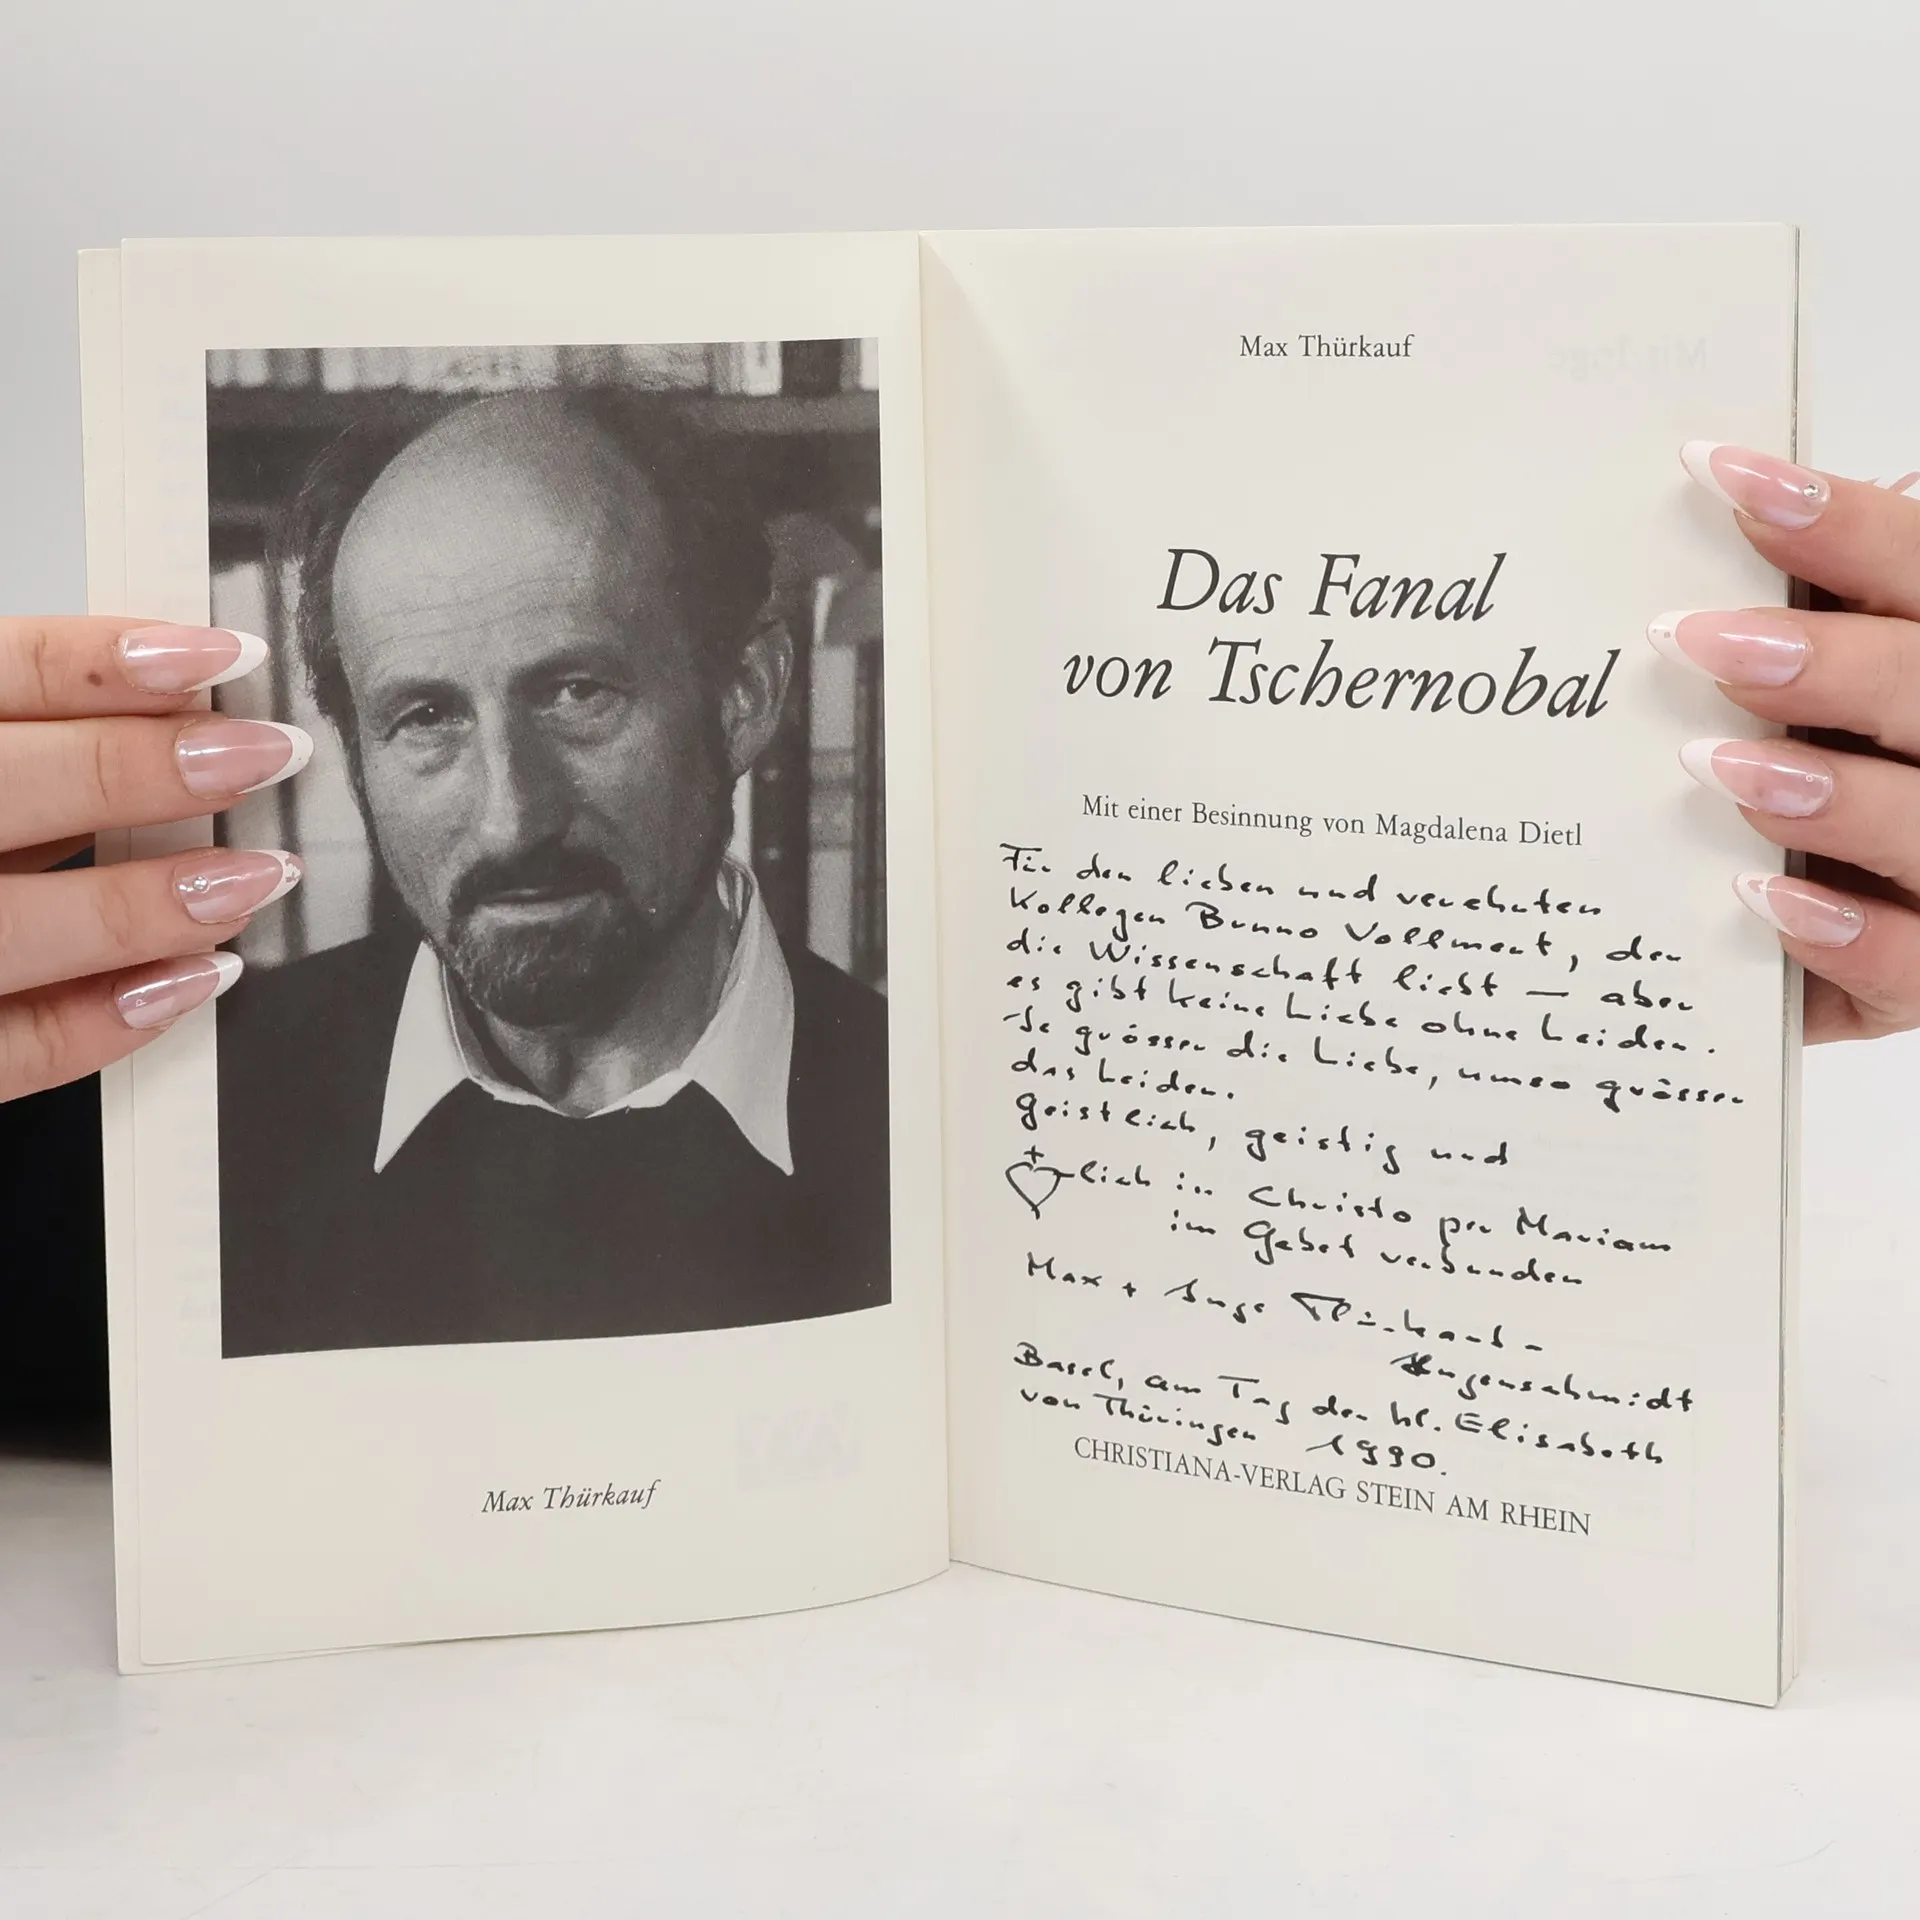 Max Thürkauf
Max Thürkauf
Das Fanal
von Tschernobal
Mit einer Besinnung von Magdalena Dietl
Für den lieben und verehrten
Kollegen Bruno Vollmert, der
die Wissenschaft liebt — aber
es gibt keine Liebe ohne Leiden.
Je grösser die Liebe, umso grösser
das Leiden.
Geistlich, geistig und
lich in Christo per Mariam
im Gebet verbunden
Max + Inge Thürkauf-
Hugenschmidt
Basel, am Tag der hl. Elisabeth
von Thüringen 1990.
CHRISTIANA-VERLAG STEIN AM RHEIN